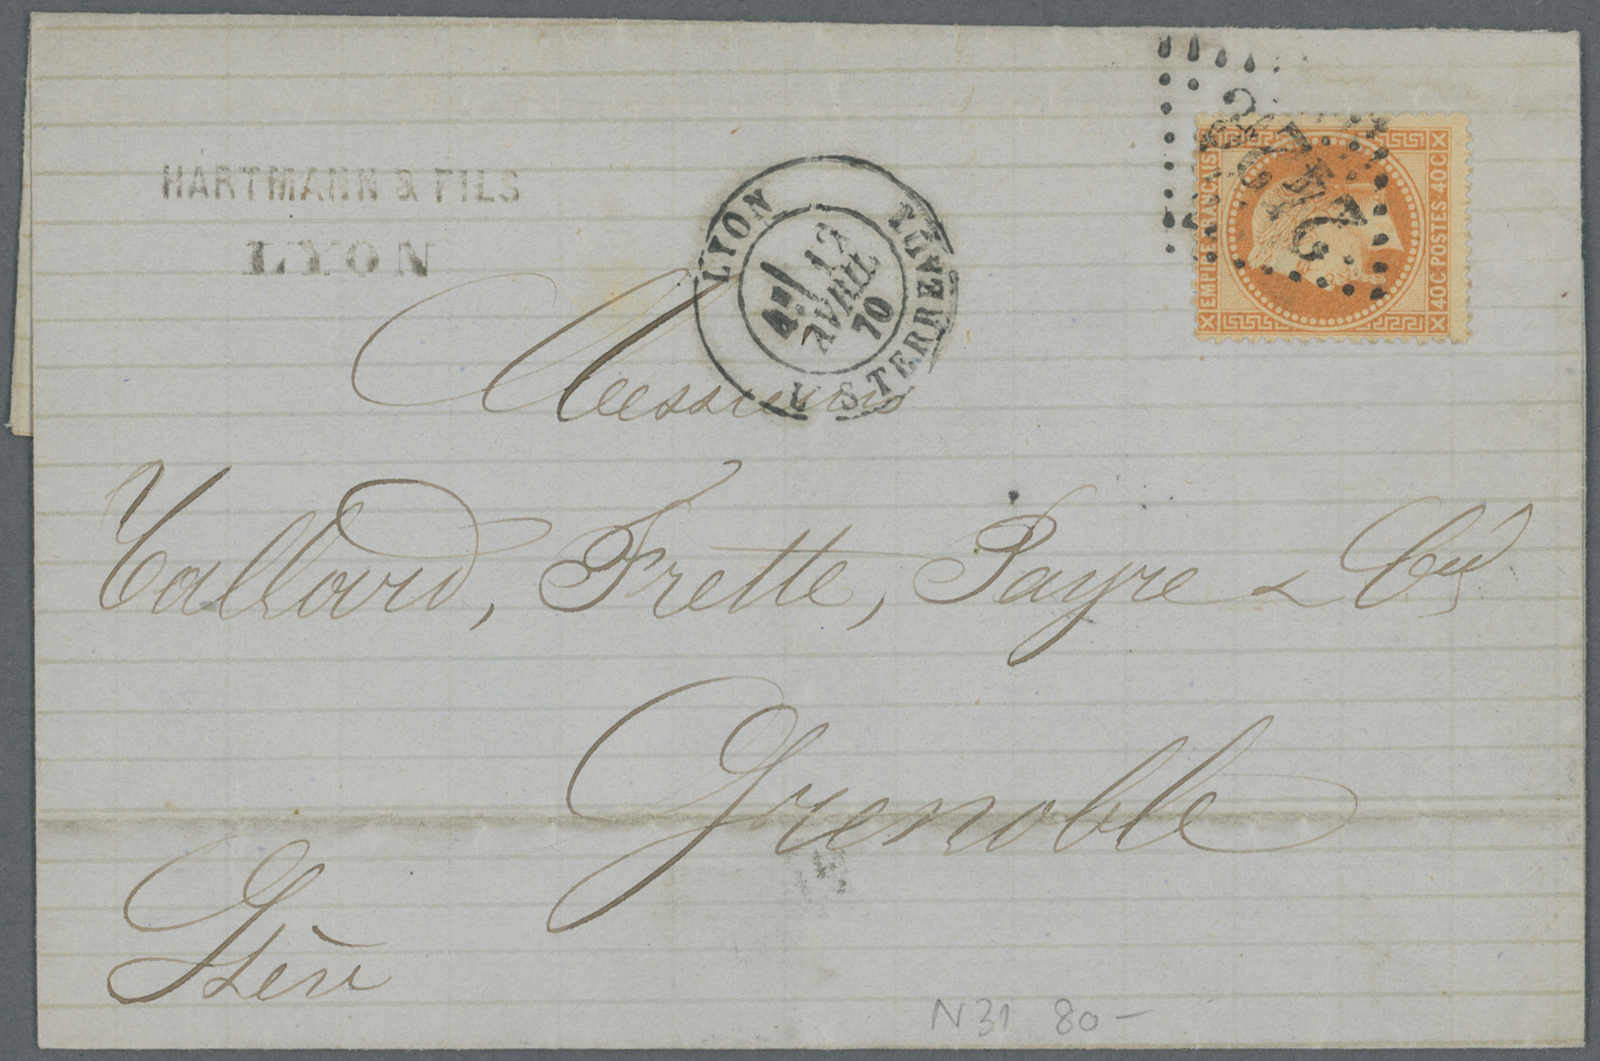 HARTMANN & FILS
LYON
LYON LES TERREAUX
12
AVRIL
70
EMPIRE FRANÇAIS
40C POSTES 40C
Messieurs
Tallard, Frette, Payre & Cie
Grenoble
Isère
N31 80-